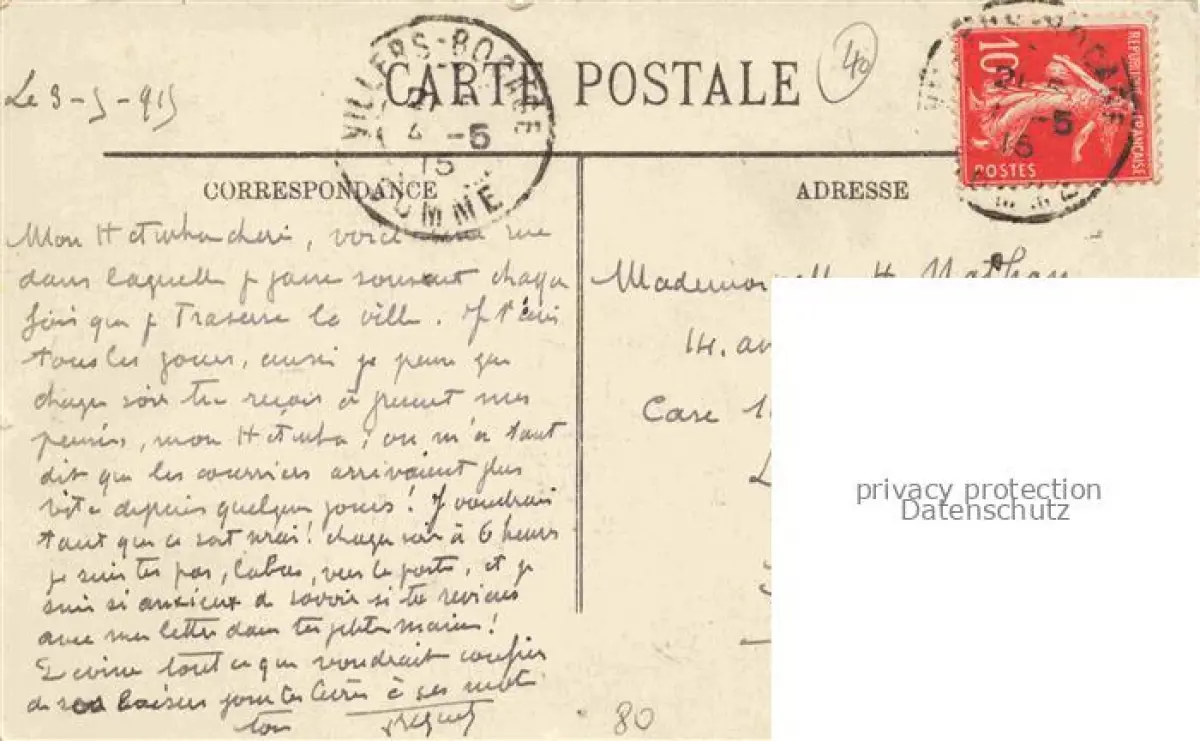 Le 3-5-915
VILLERS-BOCAGE
4 -5
15
SOMME
CARTE POSTALE
40
10c
RÉPUBLIQUE FRANÇAISE
POSTES
-5
15
CORRESPONDANCE
ADRESSE
Mon chéri, voici une rue
dans laquelle je passe souvent chaque
fois que je traverse la ville. Je t'écris
tous les jours, aussi je pense que
chaque soir tu reçois à présent mes
pensées, mon ; on m'a tant
dit que les courriers arrivaient plus
vite depuis quelques jours! Je voudrais
tant que ce soit vrai! chaque soir à 6 heures
je suis tes pas, labas, vers la poste, et je
suis si anxieux de savoir si tu reviens
avec mes lettres dans tes petites mains!
tout ce que voudrait confier
de baisers pour tes lèvres à ses mots
ton
H. Nathan
14. av
Case 1
80
privacy protection
Datenschutz